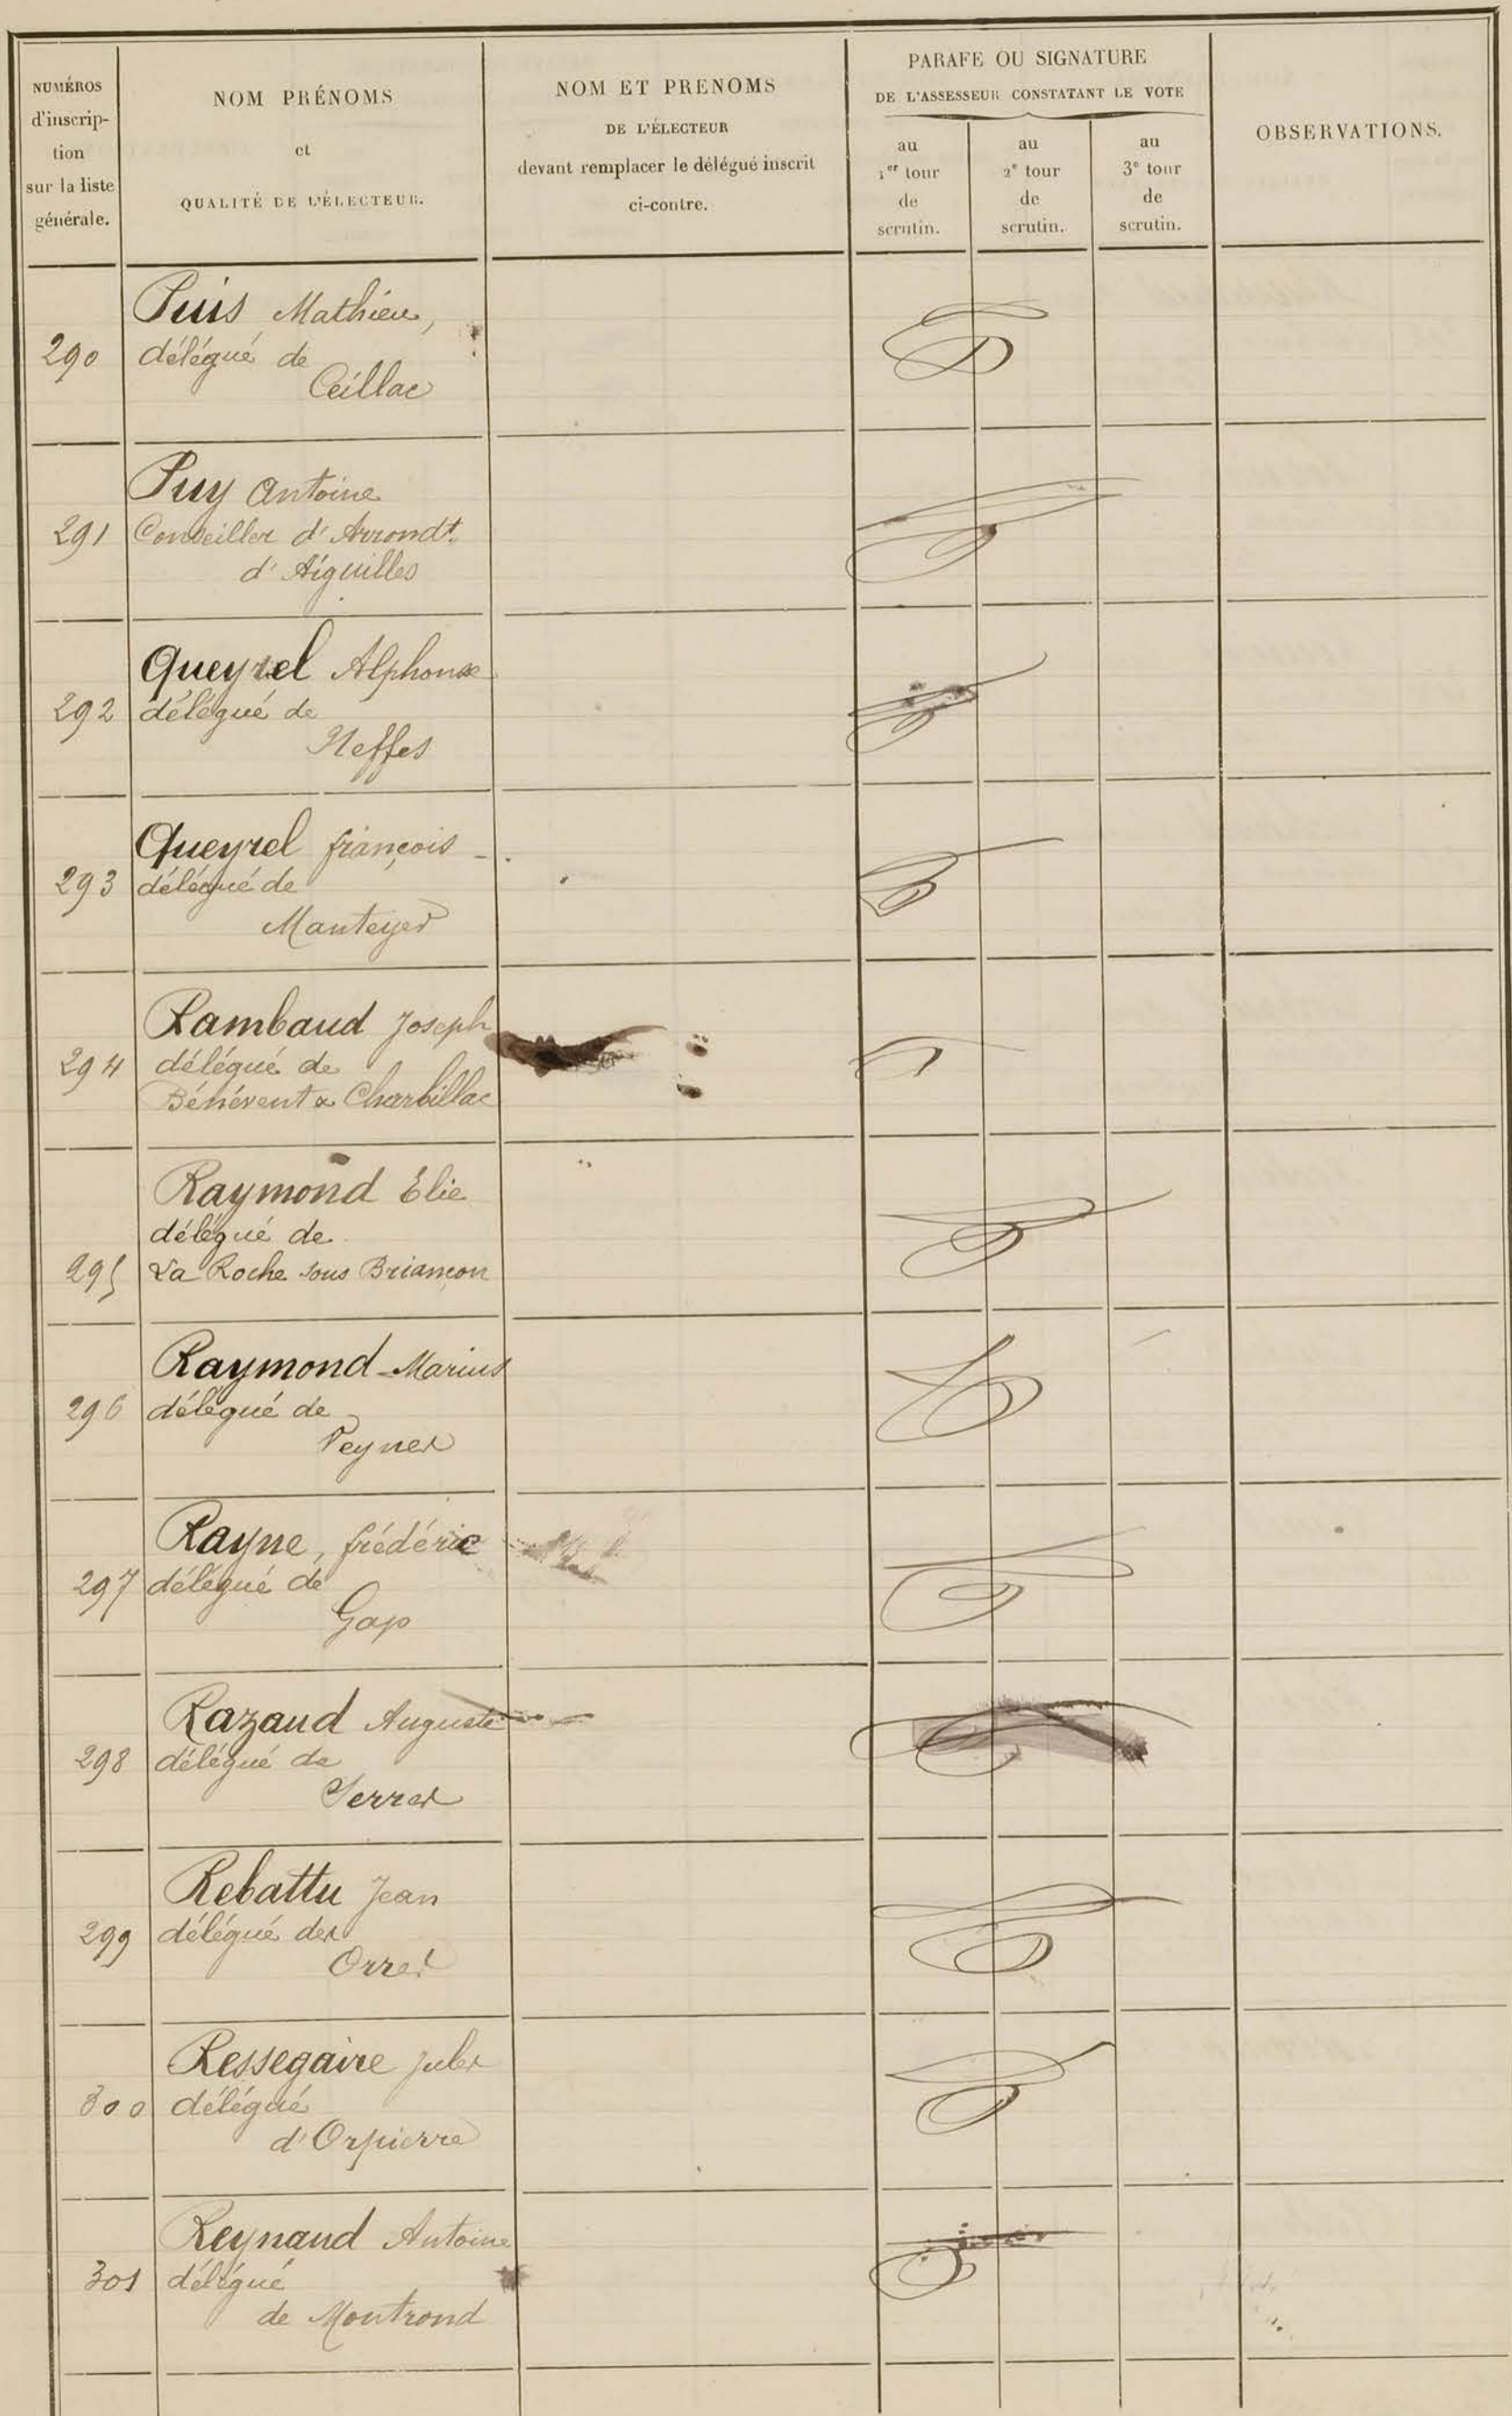 NUMÉROS
d'inscrip-
tion
sur la liste
générale.
NOM PRÉNOMS
et
QUALITÉ DE L'ÉLECTEUR.
NOM ET PRENOMS
DE L'ÉLECTEUR
devant remplacer le délégué inscrit
ci-contre.
PARAFE OU SIGNATURE
DE L'ASSESSEUR CONSTATANT LE VOTE
au
1er tour
de
scrutin.
au
2e tour
de
scrutin.
au
3e tour
de
scrutin.
OBSERVATIONS.
Puis Mathieu,
290 délégué de
Ceillac
Puy Antoine
291 Conseiller d'Arrondt.
d'Aiguilles
Queyrel Alphonse
292 délégué de
Neffes
Queyrel françois
293 délégué de
Manteyer
Rambaud Joseph
294 délégué de
Bénévent & Charbillac
Raymond Élie
délégué de
295 La Roche sous Briançon
Raymond Marius
296 délégué de
Veynes
Rayne, frédéric
297 délégué de
Gap
Razaud Auguste
298 délégué de
Serres
Rebattu Jean
299 délégué des
Orres
Ressegaire Jules
300 délégué
d'Orpierre
Reynaud Antoine
301 délégué
de Montrond